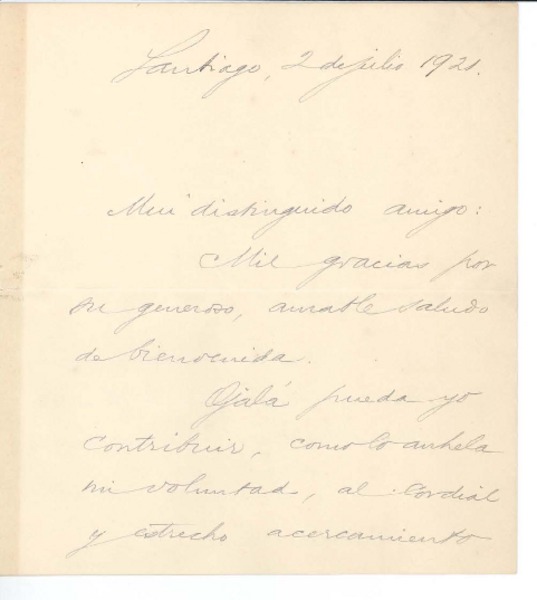 Santiago, 2 de julio 1921.
Mui distinguido amigo:
Mil gracias por
su generoso, amable saludo
de bienvenida.
Ojalá pueda yo
contribuir, como lo anhela
mi voluntad, al cordial
y estrecho acercamiento